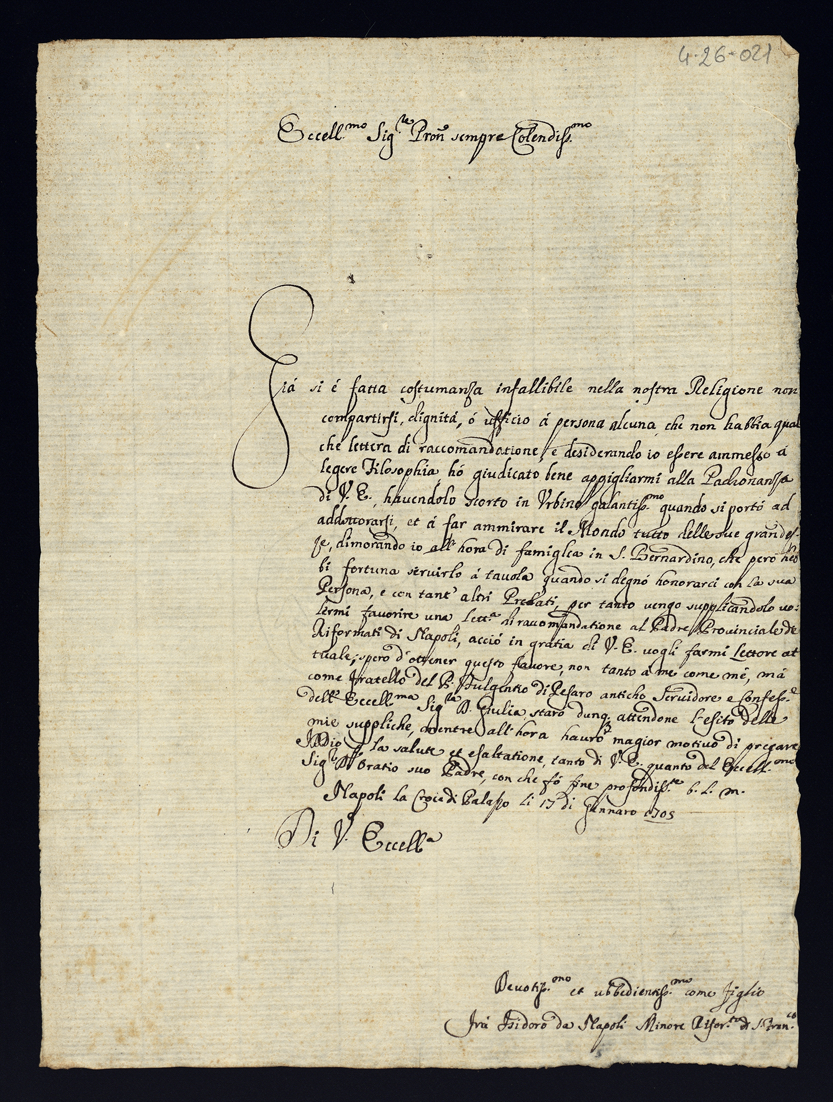 4-26-021
Eccell.mo Sig.re Pron sempre Colendiss.mo
Già si é fatta costumanza infallibile nella nostra Religione non
compartirsi, dignitá, ó ufficio á persona alcuna, che non habbia qual
che lettera di raccomandatione, e desiderando io essere ammesso á
legere Filosophia hó giudicato bene appigliarmi alla Padronanza
di V. E., havendolo scorto in Urbino galantiss.mo quando si portó ad
addottorarsi, et á far ammirare il Mondo tutto delle sue grandez-
ze, dimorando io all'hora di famiglia in S. Bernardino, che però heb
bi fortuna servirlo á tavola quando si degnó honorarci con la sua
Persona, e con tant'altri Prelati, per tanto vengo supplicandolo vo-
lermi favorire una Lett.a di racomandatione al Padre Provinciale de
Riformati di Napoli, acció in gratia di V. E. vogli farmi Lettore at
tuale, spero d'ottener questo favore, non tanto a me come mé, má
come fratello del P. Fulgentio di Pesaro anticho Servidore e Confess.e
dell'Eccell.ma Sig.ra D. Giulia, staró dunq. attendone l'esito delle
mie suppliche, mentre all'hora hauró magior motivo di pregare
Iddio p la salute et esaltatione, tanto di V. E. quanto del Eccell.mo
Sig.re D. Oratio suo Padre, con che fó fine profondiss.te b. l. m.
Napoli la Croce di Palazzo li 17 di Gennaro 1705
Di V. Eccell.a
Devotiss.mo et ubbedientiss.mo come figlio
Frá Isidoro da Napoli Minore Rifor.to di S. Fran.co